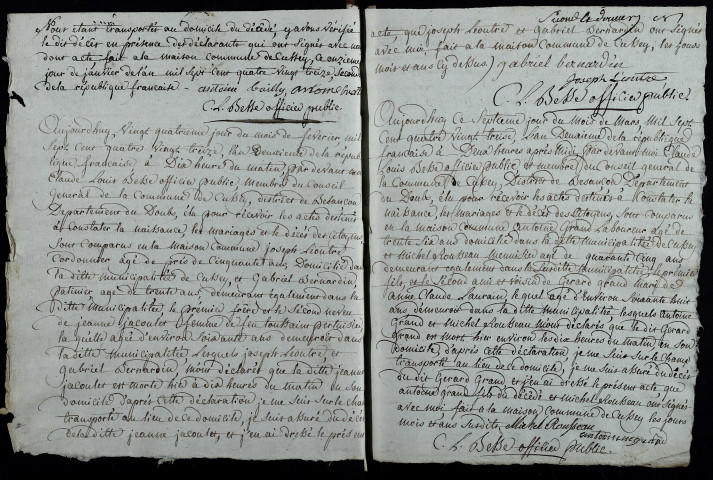 Nous étant transportés au domicile du décédé, y avons vérifié
le dit décès en présence des déclarants qui ont signés avec nous
dont acte fait a la maison commune de Cussey, ce onzieme
jour de janvier de l'an mil sept cent quatre vingt treize, second
de la republique francaise — antoine
C. L. Besse officier public
Aujourdhuy Vingt quatrieme jour du mois de fevrier mil
Sept cent quatre Vingt treize, l'an Deuxieme de la répub
lique francaise à Dix heure du matin, par devant moi
Claude Louis Besse officier public, membre du Conseil
General de la Commune de Cussey, district de Besancon
Departement du Doubs, élu pour recevoir les actes destinés
à Constater la naissance, les mariages et le décès des Citoyens
Sont Comparus en la maison Commune joseph Lioutre
Cordonnier agé de près de Cinquante ans, Domicilié dans
la ditte municipalitée de Cussey, et Gabriel Bernardin,
agé de trente ans demeurant également dans la
ditte municipalitée, le prémier frère et le Second neveu
de jeanne jacoulet femme de feu toussaint
laquelle agée d'environ soixante ans demeuroit dans
la ditte municipalitée Lesquels joseph Lioutre, et
gabriel Bernardin, mont déclarer que la ditte jeanne
jacoulet est morte hier à dix heures du matin en son
domicile d'après cette déclaration, je me Suis sur le Champ
transporté au lieu de ce domicile, je me suis assuré du décès
de la ditte jeanne jacoulet, et j'en ai dressé le présent
acte, que joseph Lioutre et Gabriel Bernardin ont signés
avec moi. fait a la maison Commune de Cussey, les jours
mois et ans Cy dessus gabriel bernardin
Joseph Lioutre
C. L. Besse officier public
Aujourdhuy Ce Septieme jour du mois de Mars mil Sept
Cent quatre Vingt treize, l'an Deuxieme de la république
francaise à Deux heures après Midi, Par devant moi Claude
Louis Besse officier public et membre du Conseil general de
la Commune de Cussey, District de Besançon Departement
du Doub, élu pour recevoir les actes destinés a Constater la
naissance, les Mariages et le décès des Citoyens Sont Comparus
en la maison Commune Antoine Grand Laboureur agé de
trente six ans domicilié dans la ditte municipalitée de Cussey
et michel Rousseau menuisier agé de quarante Cinq ans
demeurant également dans la Susditte municipalitée, le prémier
fils, et le Second ami et voisin de Gerard grand mary de
anne Claude Laurain lequel agé d'environ Soixante huit
ans demeuroit dans la ditte municipalité, lesquels Antoine
Grand et michel Rousseau mont déclarés que le dit Gerard
Grand est mort hier environ les dix heures du matin en son
domicile, d'après cette déclaration, je me suis sur le Champ
transporté au lieu de ce domicile, je me suis assuré du décès
du dit Gerard Grand et j'en ai dressé le présent acte que
antoine grand fils du décédé et michel Rousseau ont signés
avec moi fait a la maison Commune de Cussey les jours
mois et ans Susdits, Michel Rousseau
antoine grand
C. L. Besse officier public